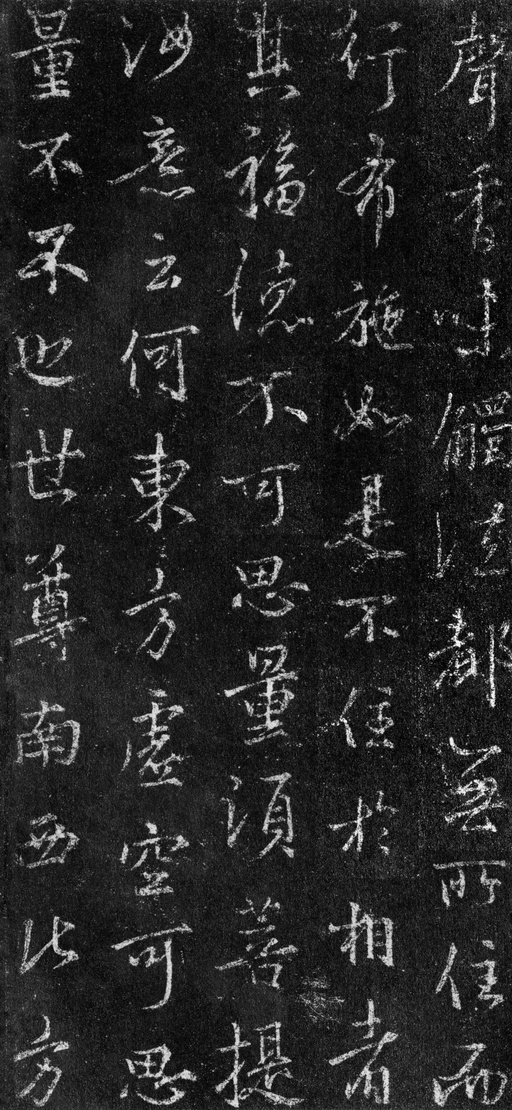 聲香味觸法都無所住而
行布施如是不住於相者
其福德不可思量須菩提
汝意云何東方虛空可思
量不不也世尊南西北方